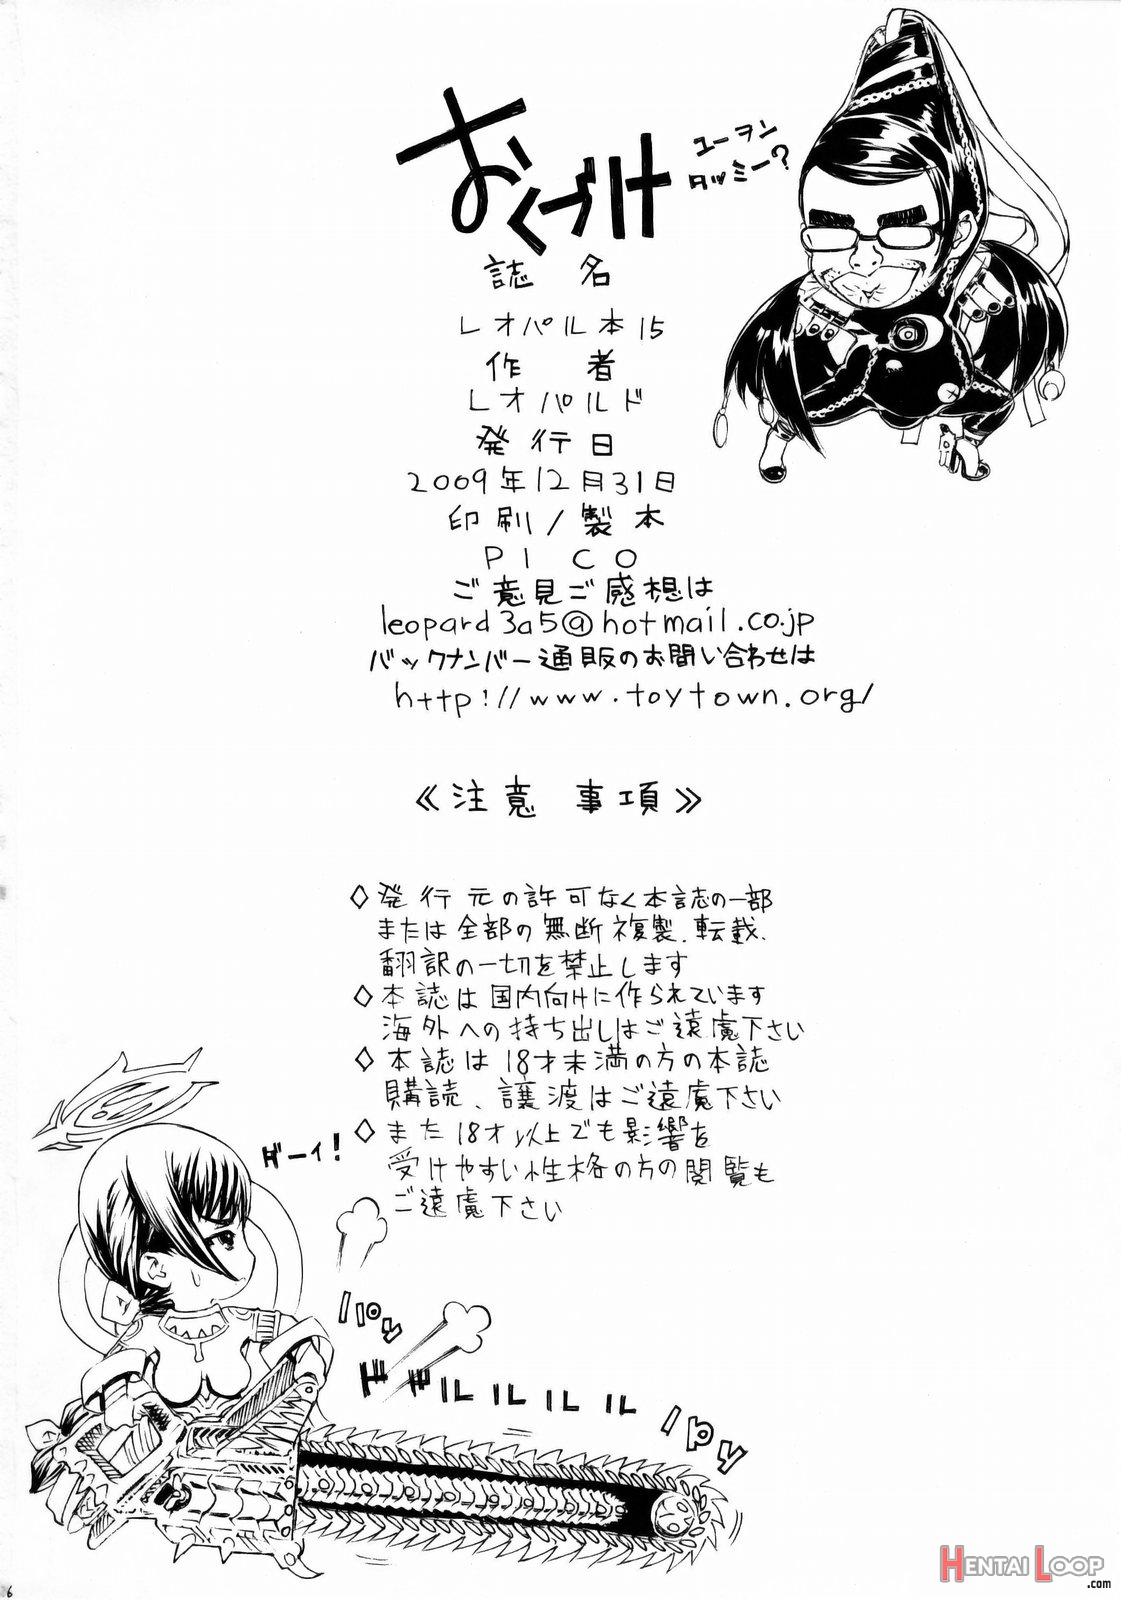 おくづけ
ユーヲン
タッミー?
誌名
レオパル本15
作者
レオパルド
発行日
2009年12月31日
印刷/製本
PICO
ご意見ご感想は
leopard3a5@hotmail.co.jp
バックナンバー通販のお問い合わせは
http://www.toytown.org/
≪注意 事項≫
◇発行元の許可なく本誌の一部
または全部の無断複製、転載、
翻訳の一切を禁止します
◇本誌は国内向けに作られています
海外への持ち出しはご遠慮下さい
◇本誌は18才未満の方の本誌
購読、譲渡はご遠慮下さい
◇また18才以上でも影響を
受けやすい性格の方の閲覧も
ご遠慮下さい
ダーイ!
パウ
ドドルルルルル
パウ
6
HENTAI LOOP
.com